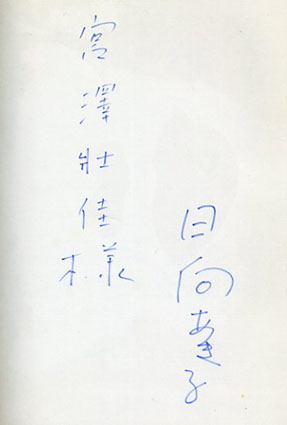 宮澤壮佳様
日向あき子